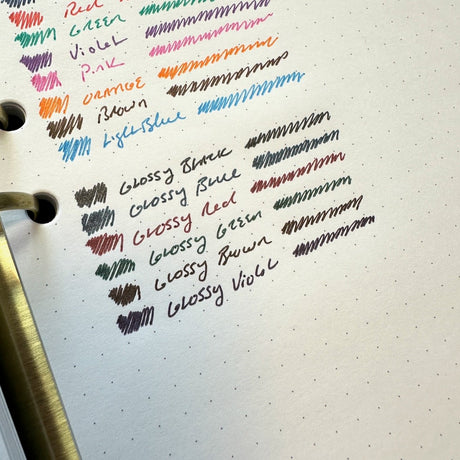 Red
Green
Violet
Pink
ORANGE
Brown
LightBlue
Glossy BLACK
Glossy Blue
Glossy Red
Glossy Green
Glossy Brown
Glossy Violet